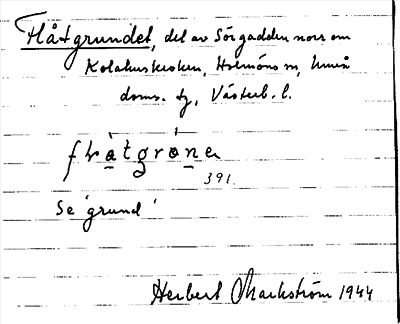 Flåtgrundet, del av Sörgadden norr om
Kolahuskroken, Holmöns sn, Umeå
doms. tg, Västerb. l.
flåtgrone
391
Se 'grund'
Herbert Markström 1944